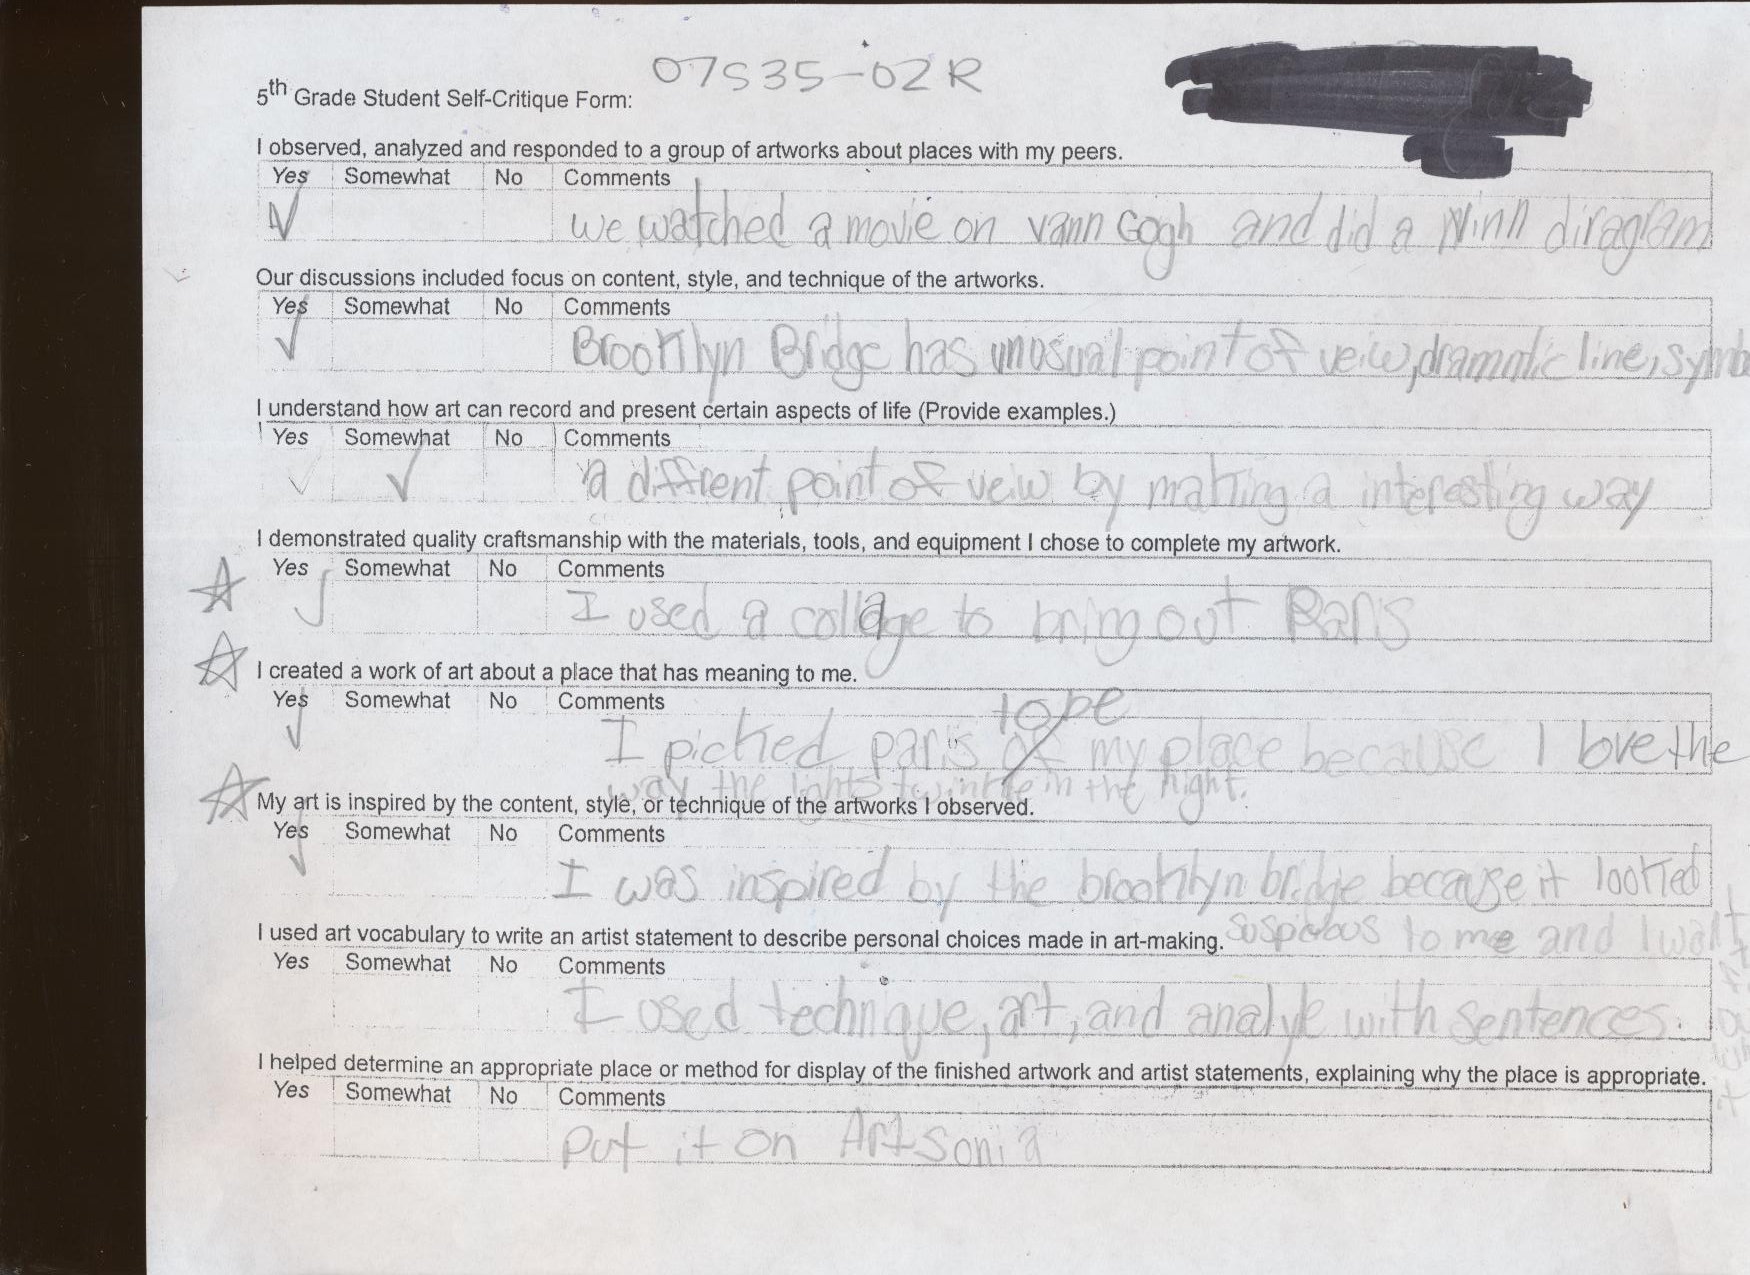 07S35-02R
5th Grade Student Self-Critique Form:
I observed, analyzed and responded to a group of artworks about places with my peers.
Yes Somewhat No Comments
we watched a movie on vann Gogh and did a Ninn diragram
Our discussions included focus on content, style, and technique of the artworks.
Yes Somewhat No Comments
Brooklyn Bridge has unusual point of veiw, dramatic line, symb
I understand how art can record and present certain aspects of life (Provide examples.)
Yes Somewhat No Comments
a diffrent point of veiw by making a interesting way
I demonstrated quality craftsmanship with the materials, tools, and equipment I chose to complete my artwork.
Yes Somewhat No Comments
I used a collage to bring out Paris
I created a work of art about a place that has meaning to me.
Yes Somewhat No Comments
tope
I picked paris my place because I love the
way the lights twinkle in the night.
My art is inspired by the content, style, or technique of the artworks I observed.
Yes Somewhat No Comments
I was inspired by the brooklyn bridge because it looked
suspicious to me and I
I used art vocabulary to write an artist statement to describe personal choices made in art-making.
Yes Somewhat No Comments
I used technique, art, and with sentences.
it
I helped determine an appropriate place or method for display of the finished artwork and artist statements, explaining why the place is appropriate.
Yes Somewhat No Comments
put it on Artsonia